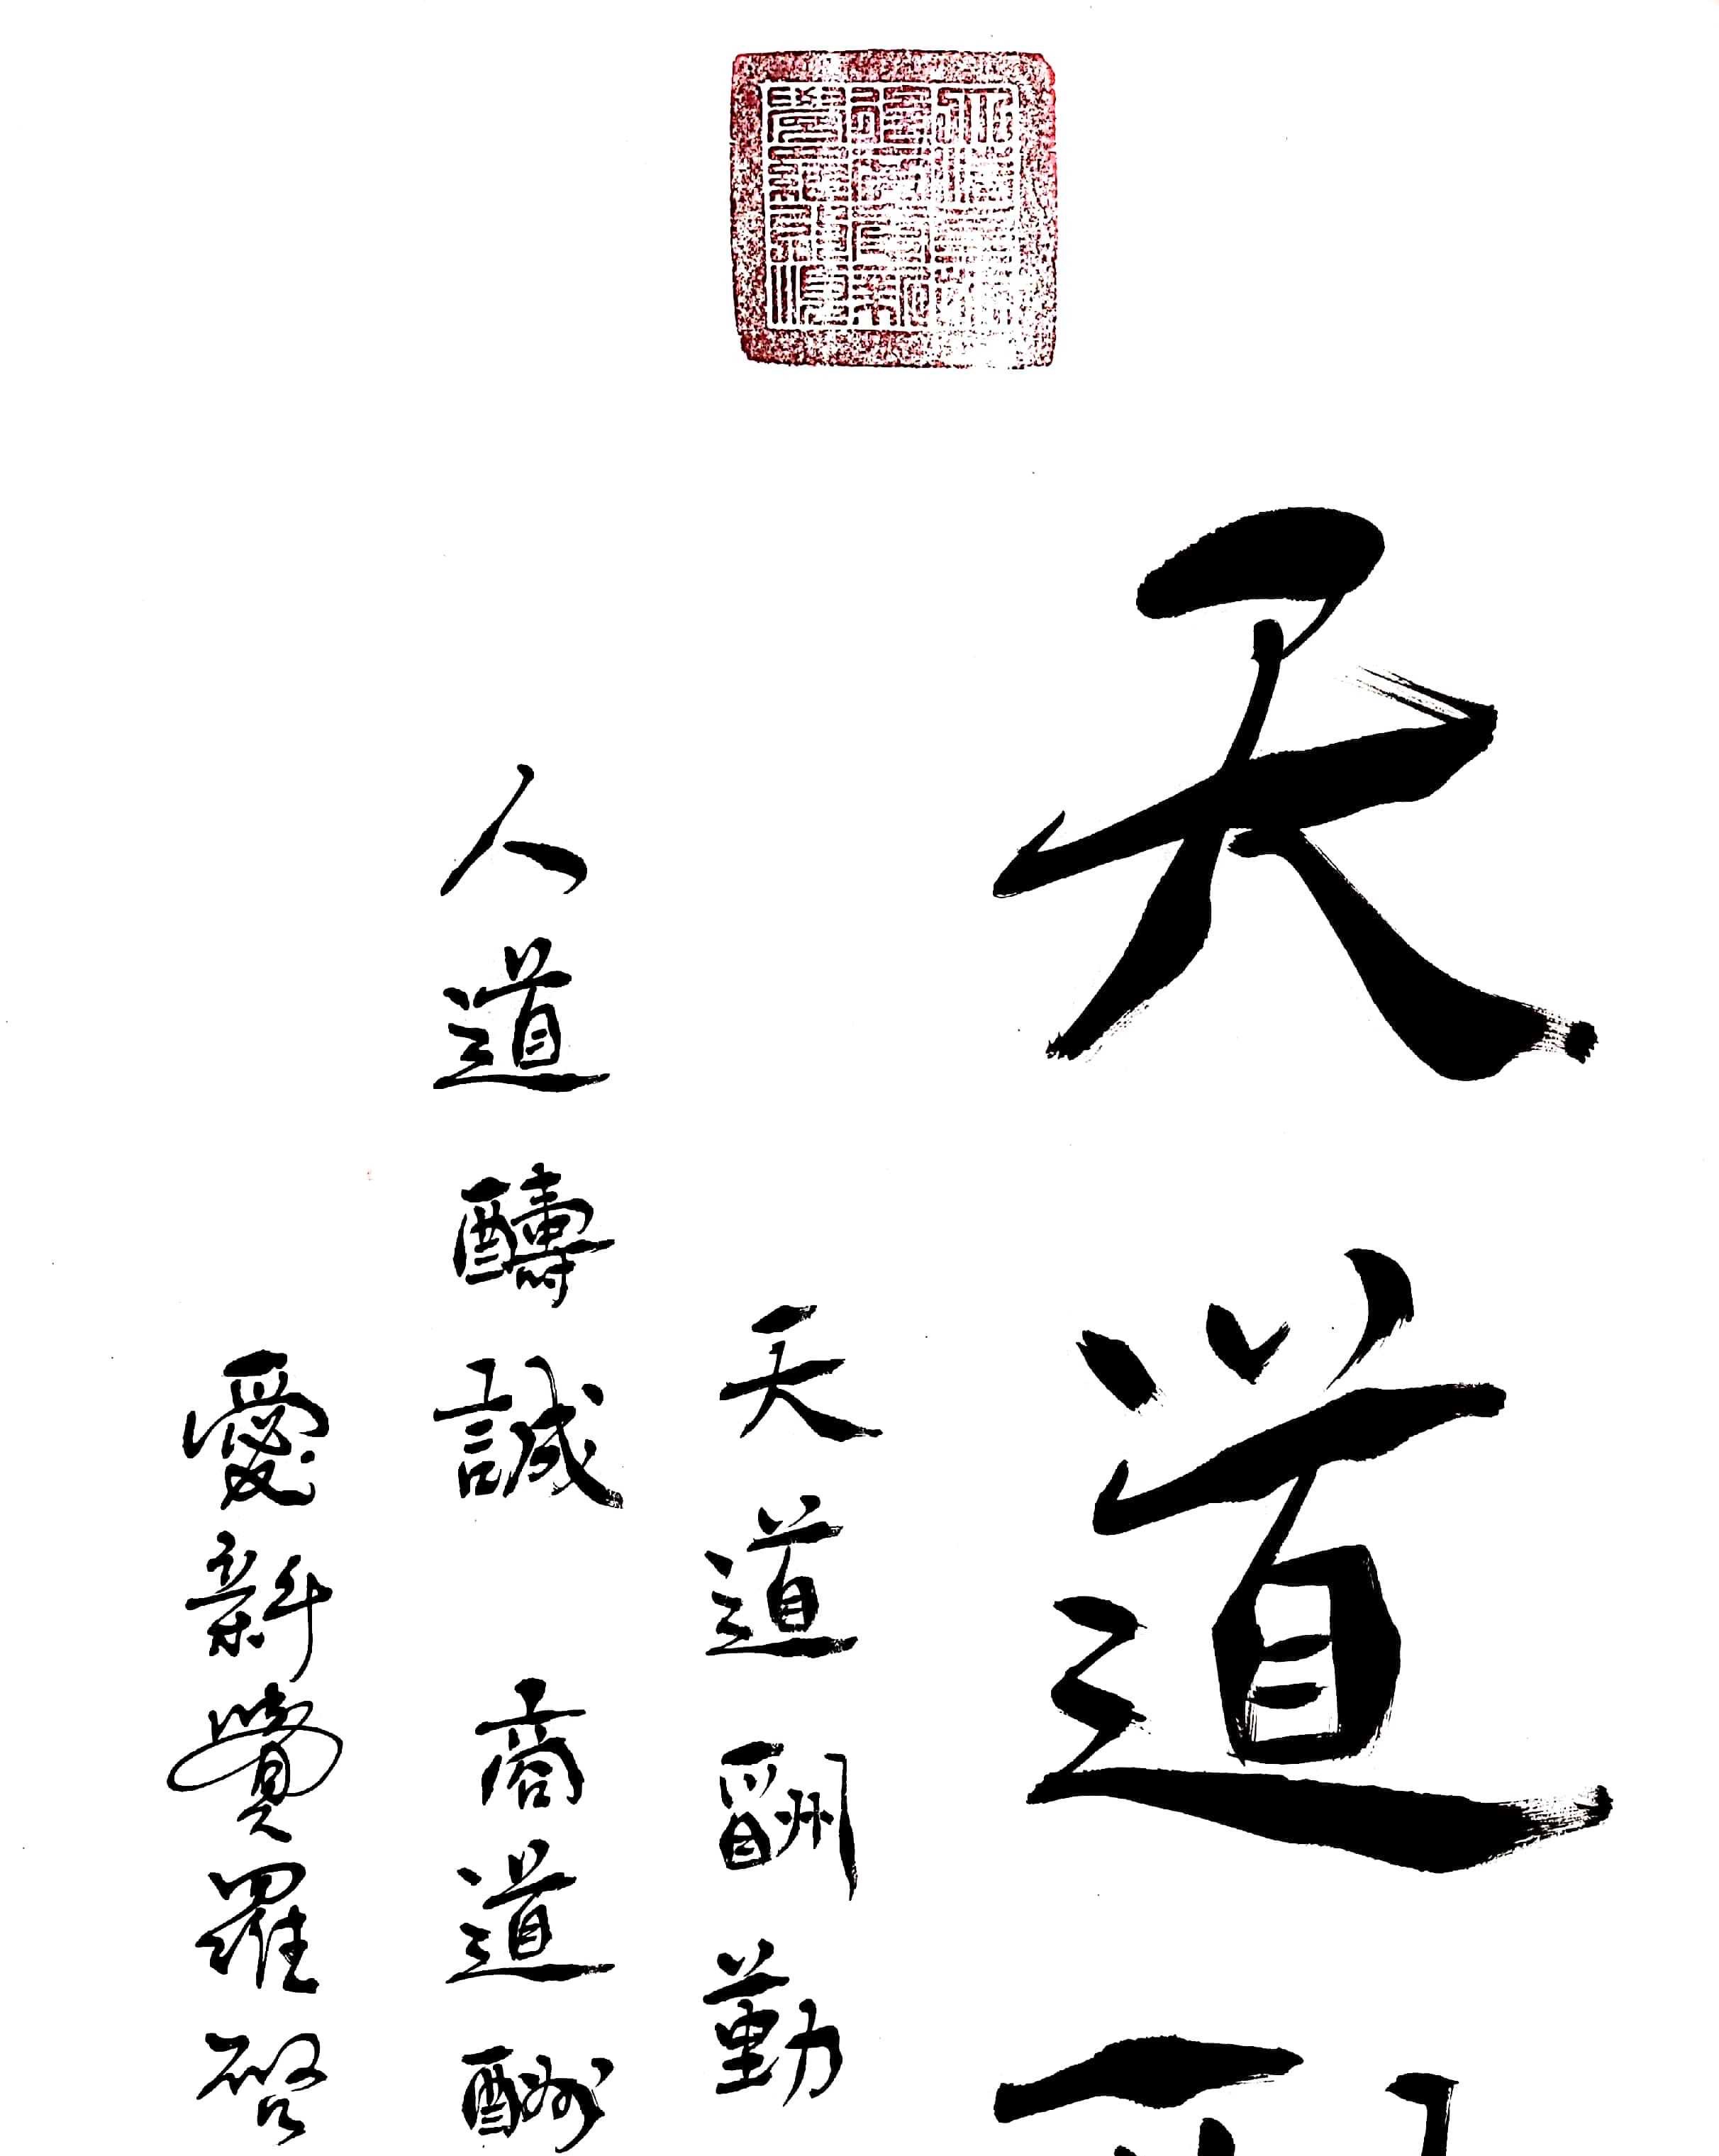 天道
天道酬勤
人道醻誠 商道酬
愛新覺羅啓